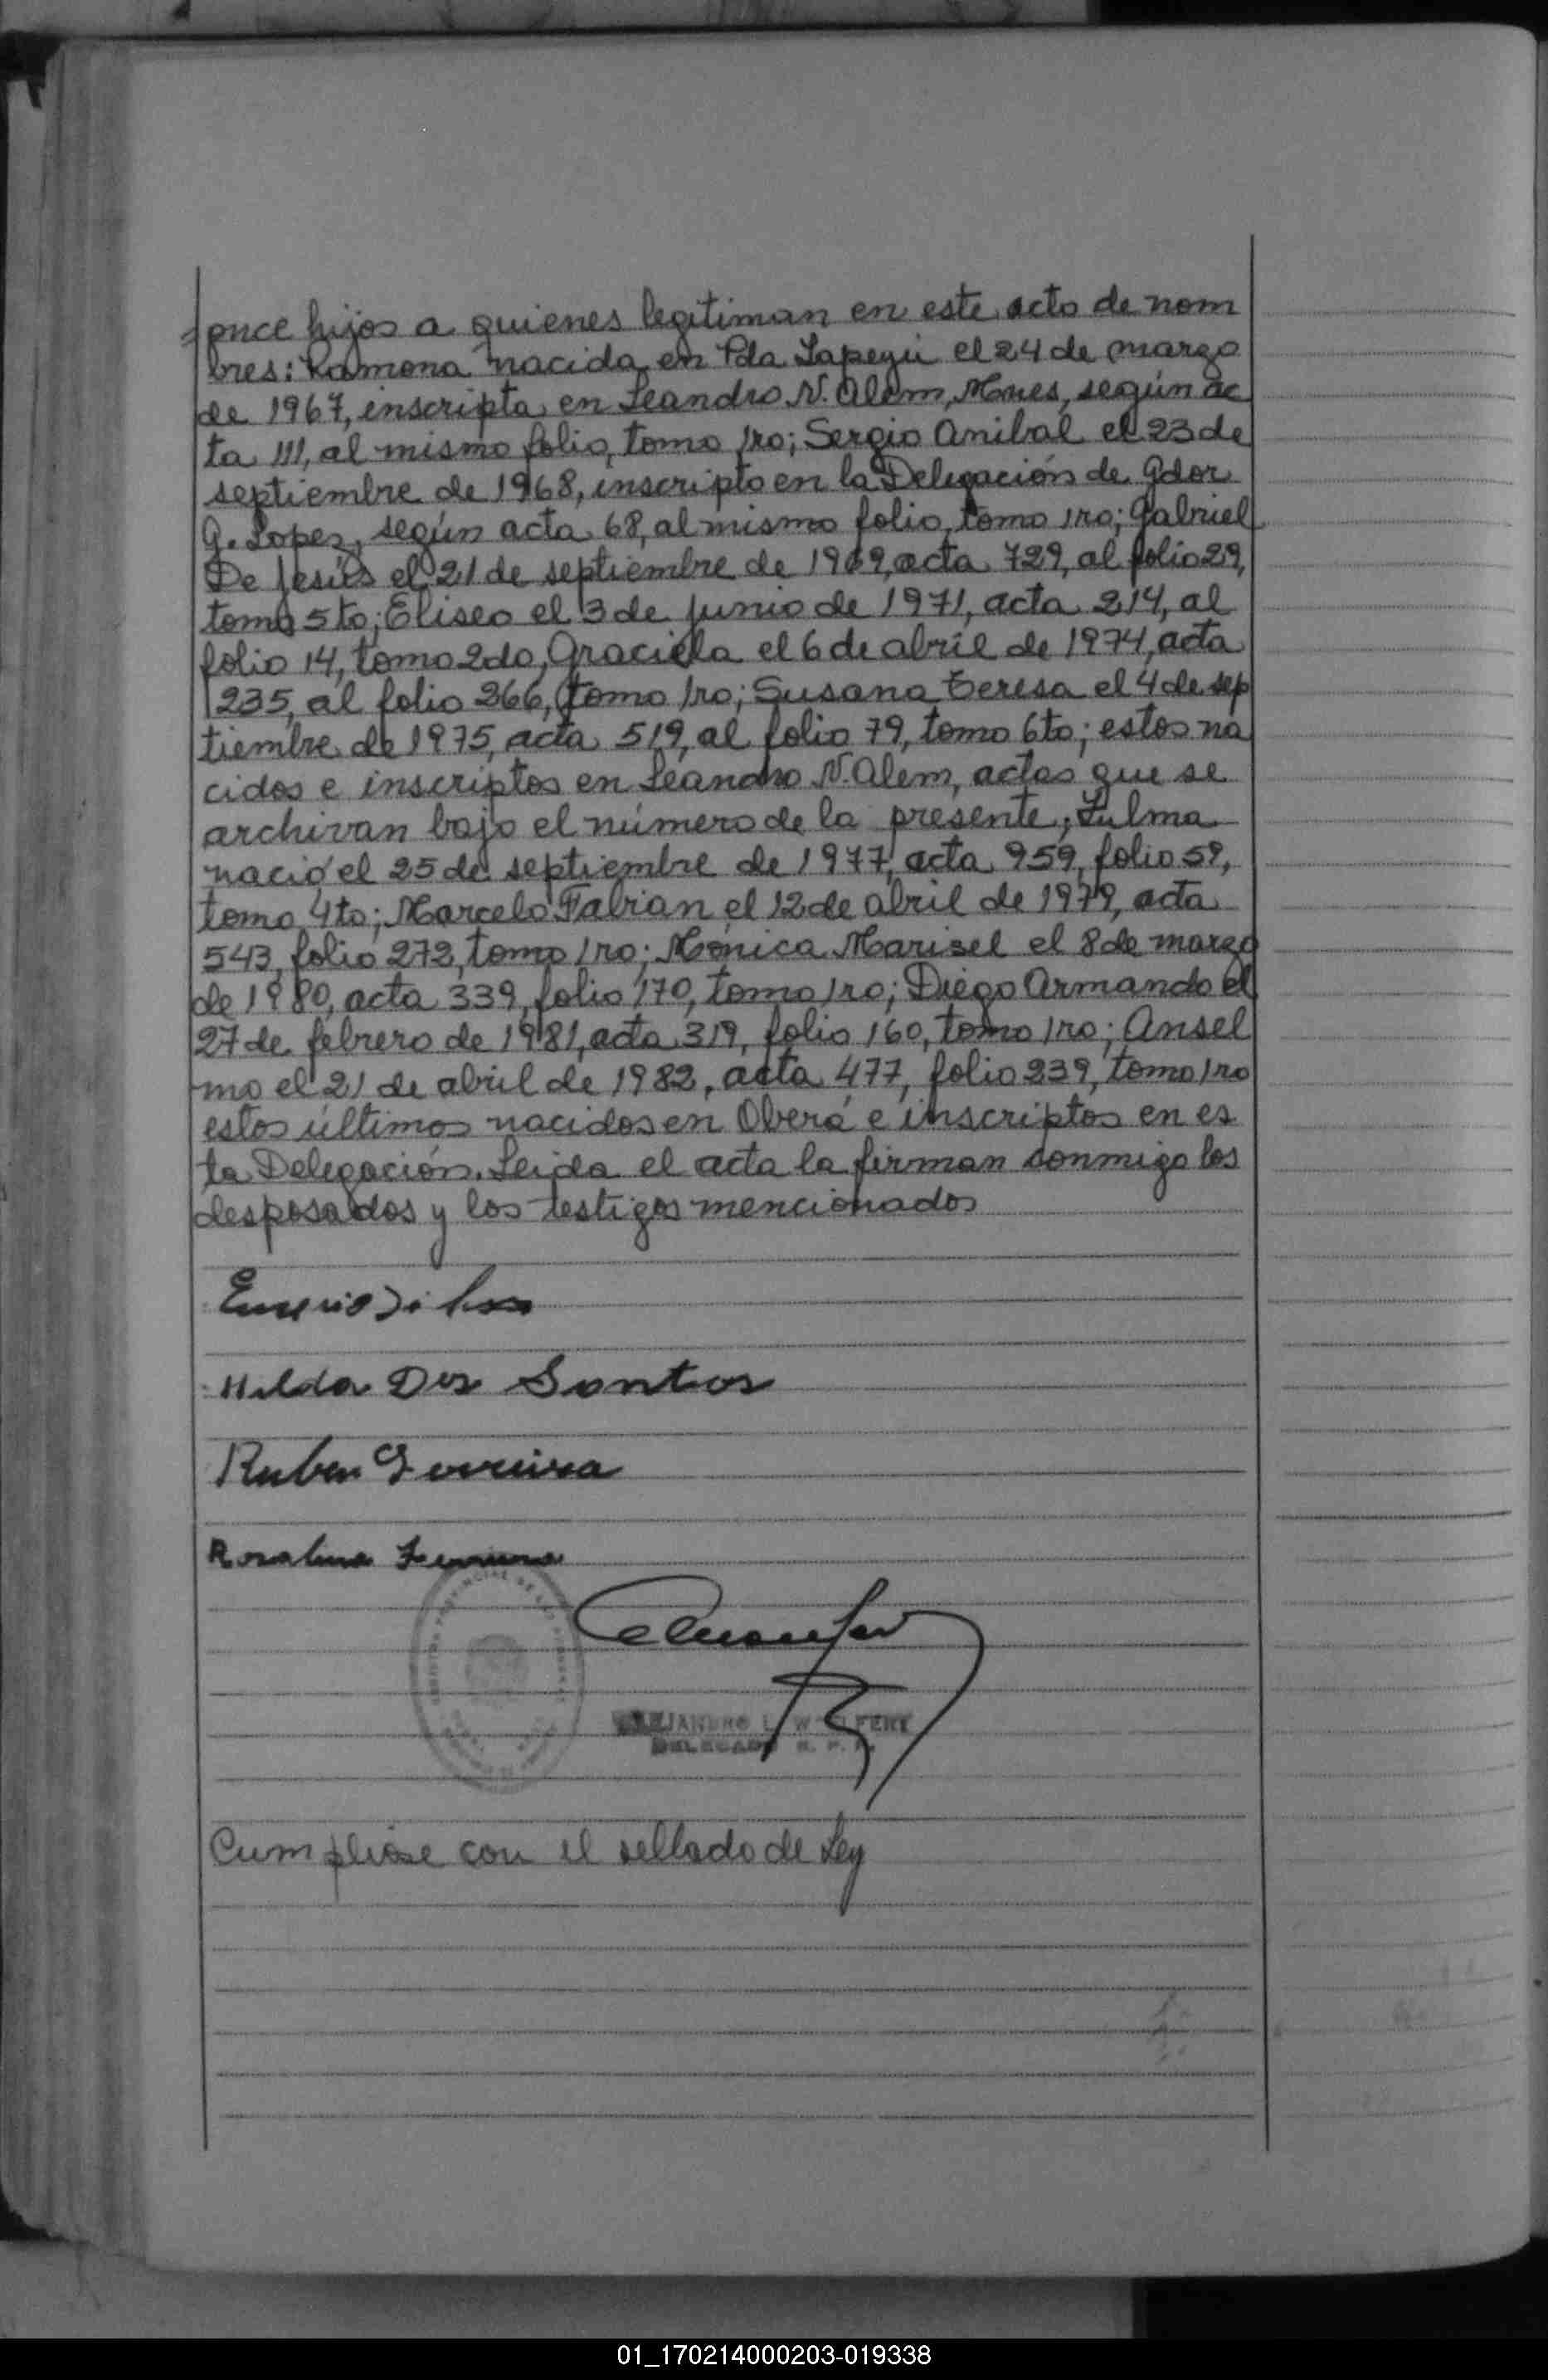 once hijos a quienes legitiman en este acto de nom
bres: Ramona nacida en Pda Yapeyú el 24 de marzo
de 1967, inscripta en Leandro N. Alem, Mnes, según ac
ta 111, al mismo folio, tomo 1ro; Sergio Anibal el 23 de
septiembre de 1968, inscripto en la Delegación de Gdor
G. Lopez, según acta 68, al mismo folio, tomo 1ro; Gabriel
De Jesús el 21 de septiembre de 1969, acta 729, al folio 29,
tomo 5to; Eliseo el 3 de junio de 1971, acta 214, al
folio 14, tomo 2do, Graciela el 6 de abril de 1974, acta
235, al folio 266, tomo 1ro; Susana Teresa el 4 de sep
tiembre de 1975, acta 519, al folio 79, tomo 6to; estos na
cidos e inscriptos en Leandro N. Alem, actas que se
archivan bajo el número de la presente; Zulma
nació el 25 de septiembre de 1977, acta 959, folio 59,
tomo 4to; Marcelo Fabian el 12 de abril de 1979, acta
543, folio 272, tomo 1ro; Mónica Marisel el 8 de marzo
de 1980, acta 339, folio 170, tomo 1ro; Diego Armando el
27 de febrero de 1981, acta 319, folio 160, tomo 1ro; Ansel
mo el 21 de abril de 1982, acta 477, folio 239, tomo 1ro
estos últimos nacidos en Oberá e inscriptos en es
ta Delegación. Leida el acta la firman conmigo los
desposados y los testigos mencionados
Hilda Dos Santos
Ruben Ferreira
Rosalina Ferreira
DELEGADO R. P.
Cumpliose con el sellado de Ley
01_170214000203-019338